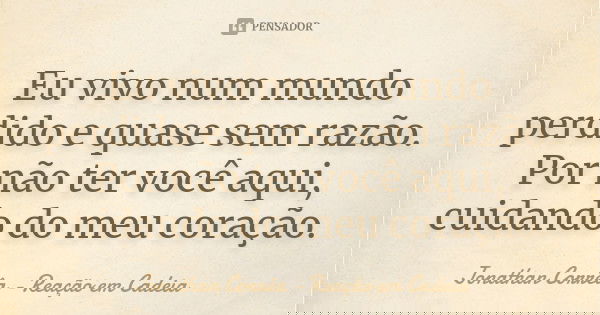 PENSADOR
Eu vivo num mundo
perdido e quase sem razão.
Por não ter você aqui,
cuidando do meu coração.
Jonathan Corrêa - Reação em Cadeia